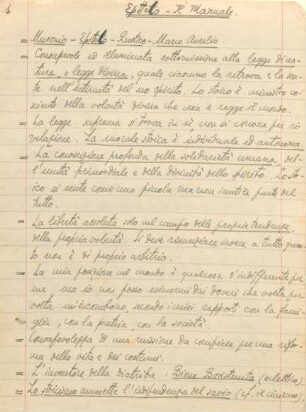 Epitteto - Il Manuale.
= Musonio - Epitteto - Rustico - Marco Aurelio
= Consapevole ed illuminata sottomissione alla legge di na-
tura, o legge divina, quale ciascuno la ritrova e la ve
de nell'intimità del suo spirito. Lo stoico è ministro co
sciente della volontà divina che crea e regge il mondo.
= La legge suprema si trova in sè, non si conosce per ri
velazione. La morale stoica è individuale ed autonoma.
= La concezione profonda della solidarietà umana, del
l'unità primordiale e della divinità dello spirito. Lo stoi
co si sente come una piccola ma non inutile parte del
tutto.
= La libertà assoluta solo nel campo delle proprie tendenze,
della propria volontà. Si deve rinunciare invece a tutto quanto
non è di proprio arbitrio.
= La mia posizione nel mondo è qualcosa d'indifferente per
me, ma io non posso esimermi dai doveri che volta per
volta m'incombono, secondo i miei rapporti con la fami-
glia, con la patria, con la società.
= Consapevolezza di una missione da compiere per una rifor
ma della vita e dei costumi.
= L'inventore della diatriba: Bione Boristenita (eclettico).
= Lo stoicismo ammette l'indipendenza del savio